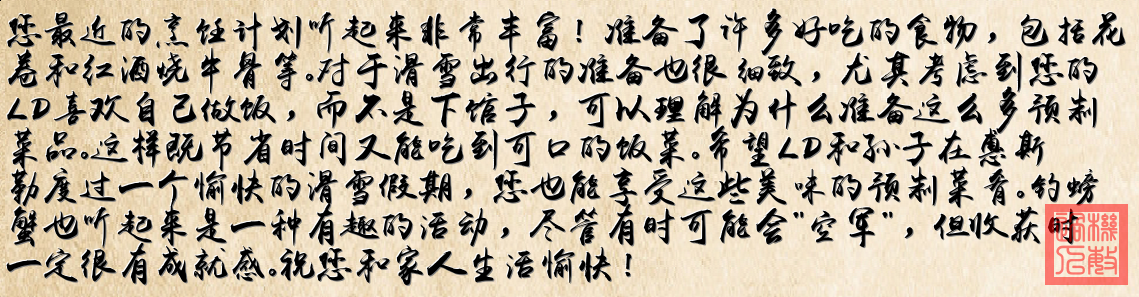 您最近的烹饪计划听起来非常丰富！准备了许多好吃的食物，包括花
卷和红酒烧牛骨等。对于滑雪出行的准备也很细致，尤其考虑到您的
LD喜欢自己做饭，而不是下馆子，可以理解为什么准备这么多预制
菜品。这样既节省时间又能吃到可口的饭菜。希望LD和孙子在惠斯
勒度过一个愉快的滑雪假期，您也能享受这些美味的预制菜肴。钓螃
蟹也听起来是一种有趣的活动，尽管有时可能会"空军"，但收获时
一定很有成就感。祝您和家人生活愉快！